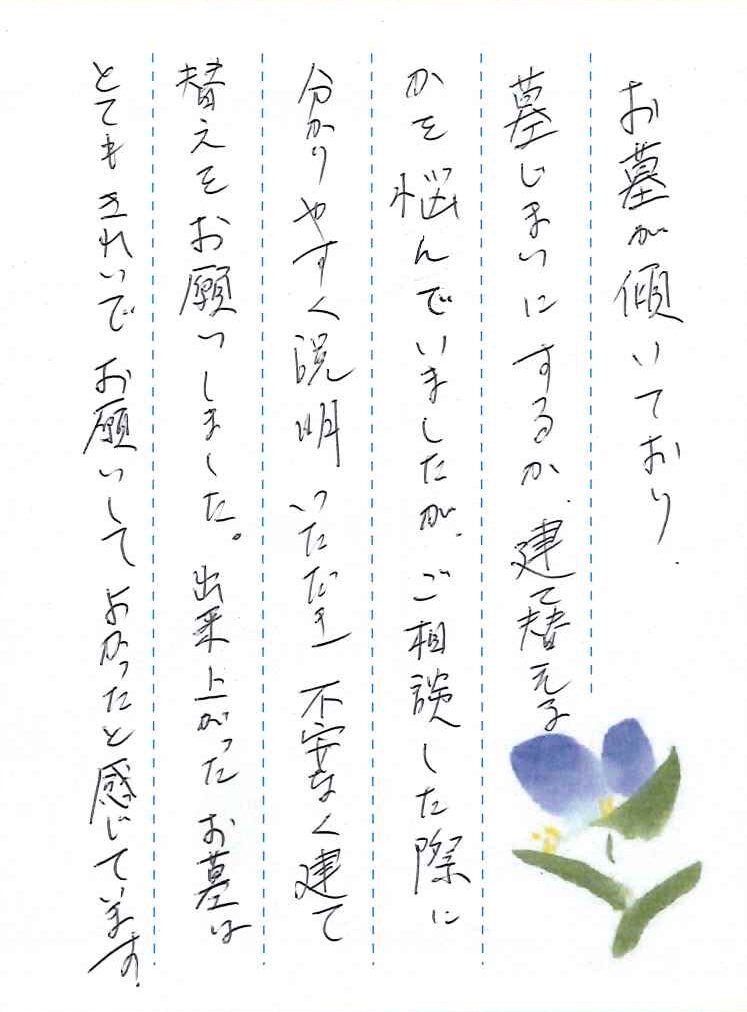 お墓が傾いており、
墓じまいにするか、建て替える
かを悩んでいましたが、ご相談した際に
分かりやすく説明いただき不安なく建て
替えをお願いしました。出来上がったお墓は
とてもきれいでお願いしてよかったと感じています。